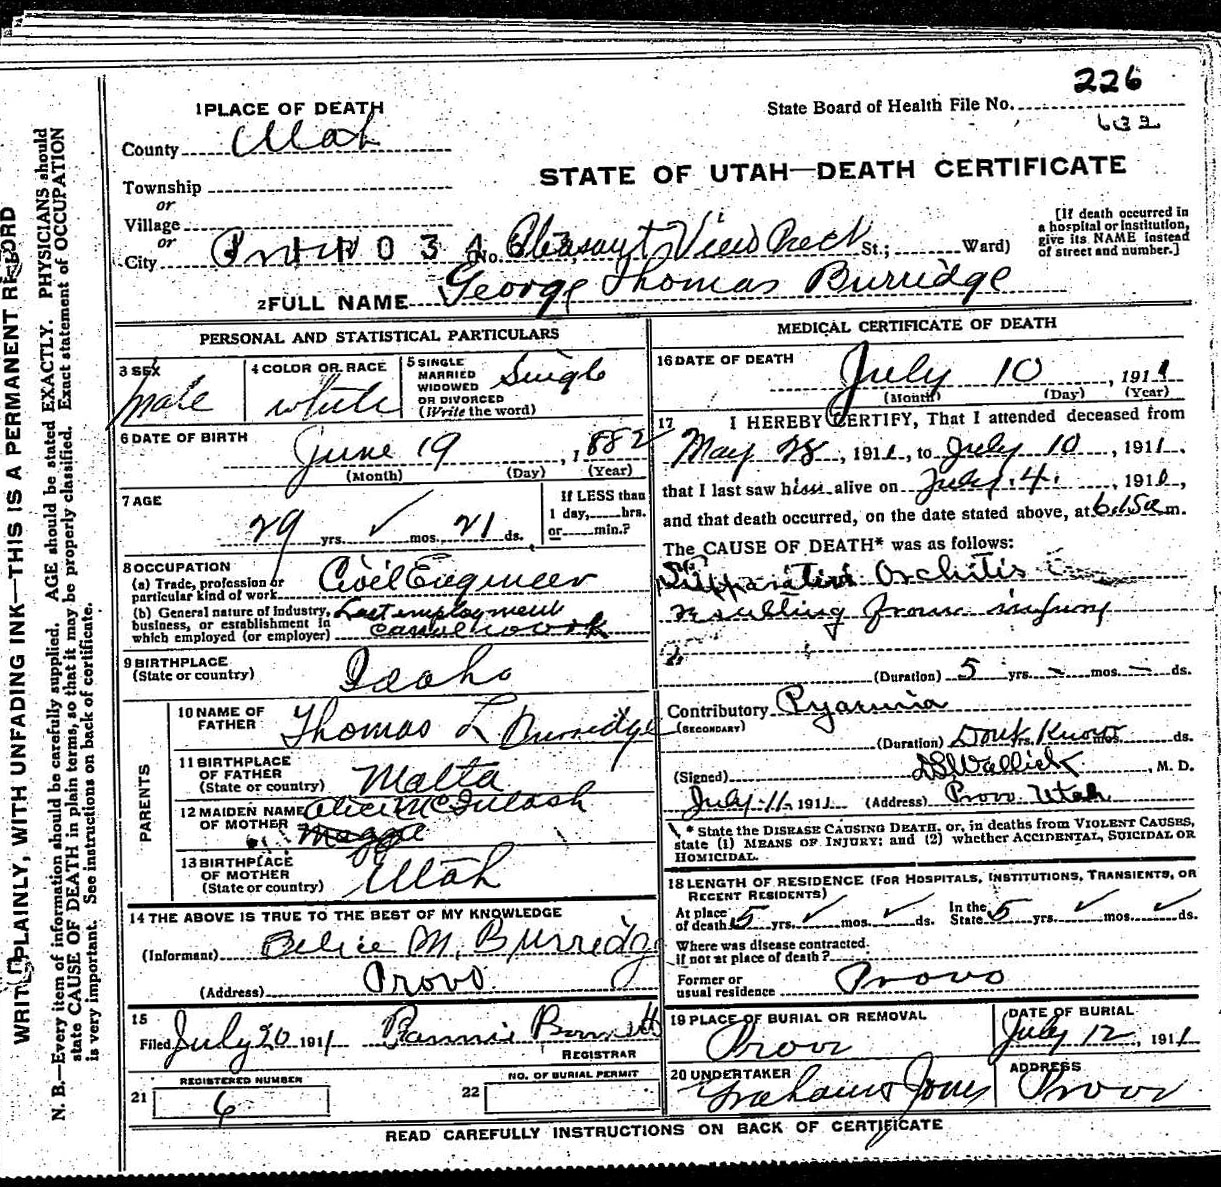 226
State Board of Health File No.
632
1 PLACE OF DEATH
County Utah
STATE OF UTAH—DEATH CERTIFICATE
Township
or
Village
or
City No. Pleasant View Prect St.; Ward)
[If death occurred in a hospital or institution, give its NAME instead of street and number.]
2 FULL NAME George Thomas Burridge
PERSONAL AND STATISTICAL PARTICULARS
3 SEX
male
4 COLOR OR RACE
white
5 SINGLE MARRIED WIDOWED OR DIVORCED (Write the word)
Single
6 DATE OF BIRTH
June 19, 1882
(Month) (Day) (Year)
7 AGE
29 yrs. ✓ mos. 21 ds.
If LESS than 1 day, hrs. or min.?
8 OCCUPATION
(a) Trade, profession or particular kind of work Civil Engineer
(b) General nature of industry, business, or establishment in which employed (or employer) Last employment
9 BIRTHPLACE
(State or country) Idaho
PARENTS
10 NAME OF FATHER Thomas L Burridge
11 BIRTHPLACE OF FATHER
(State or country) Malta
12 MAIDEN NAME OF MOTHER
13 BIRTHPLACE OF MOTHER
(State or country) Utah
14 THE ABOVE IS TRUE TO THE BEST OF MY KNOWLEDGE
(Informant) M. Burridge
(Address) Provo.
15
Filed July 20 1911 Fannie
REGISTRAR
21 REGISTERED NUMBER
6
22 NO. OF BURIAL PERMIT
MEDICAL CERTIFICATE OF DEATH
16 DATE OF DEATH
July 10, 1911
(Month) (Day) (Year)
17 I HEREBY CERTIFY, That I attended deceased from
May 28, 1911, to July 10, 1911,
that I last saw him alive on July 4, 1911,
and that death occurred, on the date stated above, at 6.15a m.
The CAUSE OF DEATH* was as follows:
Suppurative Orchitis
resulting from injury
(Duration) 5 yrs. – mos. – ds.
Contributory Pyaemia
(SECONDARY)
(Duration) Dont Know yrs. mos. ds.
(Signed) Wallick, M. D.
July 11 1911 (Address) Provo Utah
* State the DISEASE CAUSING DEATH, or, in deaths from VIOLENT CAUSES, state (1) MEANS OF INJURY; and (2) whether ACCIDENTAL, SUICIDAL OR HOMICIDAL.
18 LENGTH OF RESIDENCE (FOR HOSPITALS, INSTITUTIONS, TRANSIENTS, OR RECENT RESIDENTS)
At place of death 5 yrs. ✓ mos. ✓ ds. In the State 5 yrs. ✓ mos. ✓ ds.
Where was disease contracted, if not at place of death?
Former or usual residence Provo
19 PLACE OF BURIAL OR REMOVAL
Provo
DATE OF BURIAL
July 12, 1911
20 UNDERTAKER
Jones
ADDRESS
Provo
READ CAREFULLY INSTRUCTIONS ON BACK OF CERTIFICATE
WRITE PLAINLY, WITH UNFADING INK—THIS IS A PERMANENT RECORD
N. B.—Every item of information should be carefully supplied. AGE should be stated EXACTLY. PHYSICIANS should
state CAUSE OF DEATH in plain terms, so that it may be properly classified. Exact statement of OCCUPATION
is very important. See instructions on back of certificate.